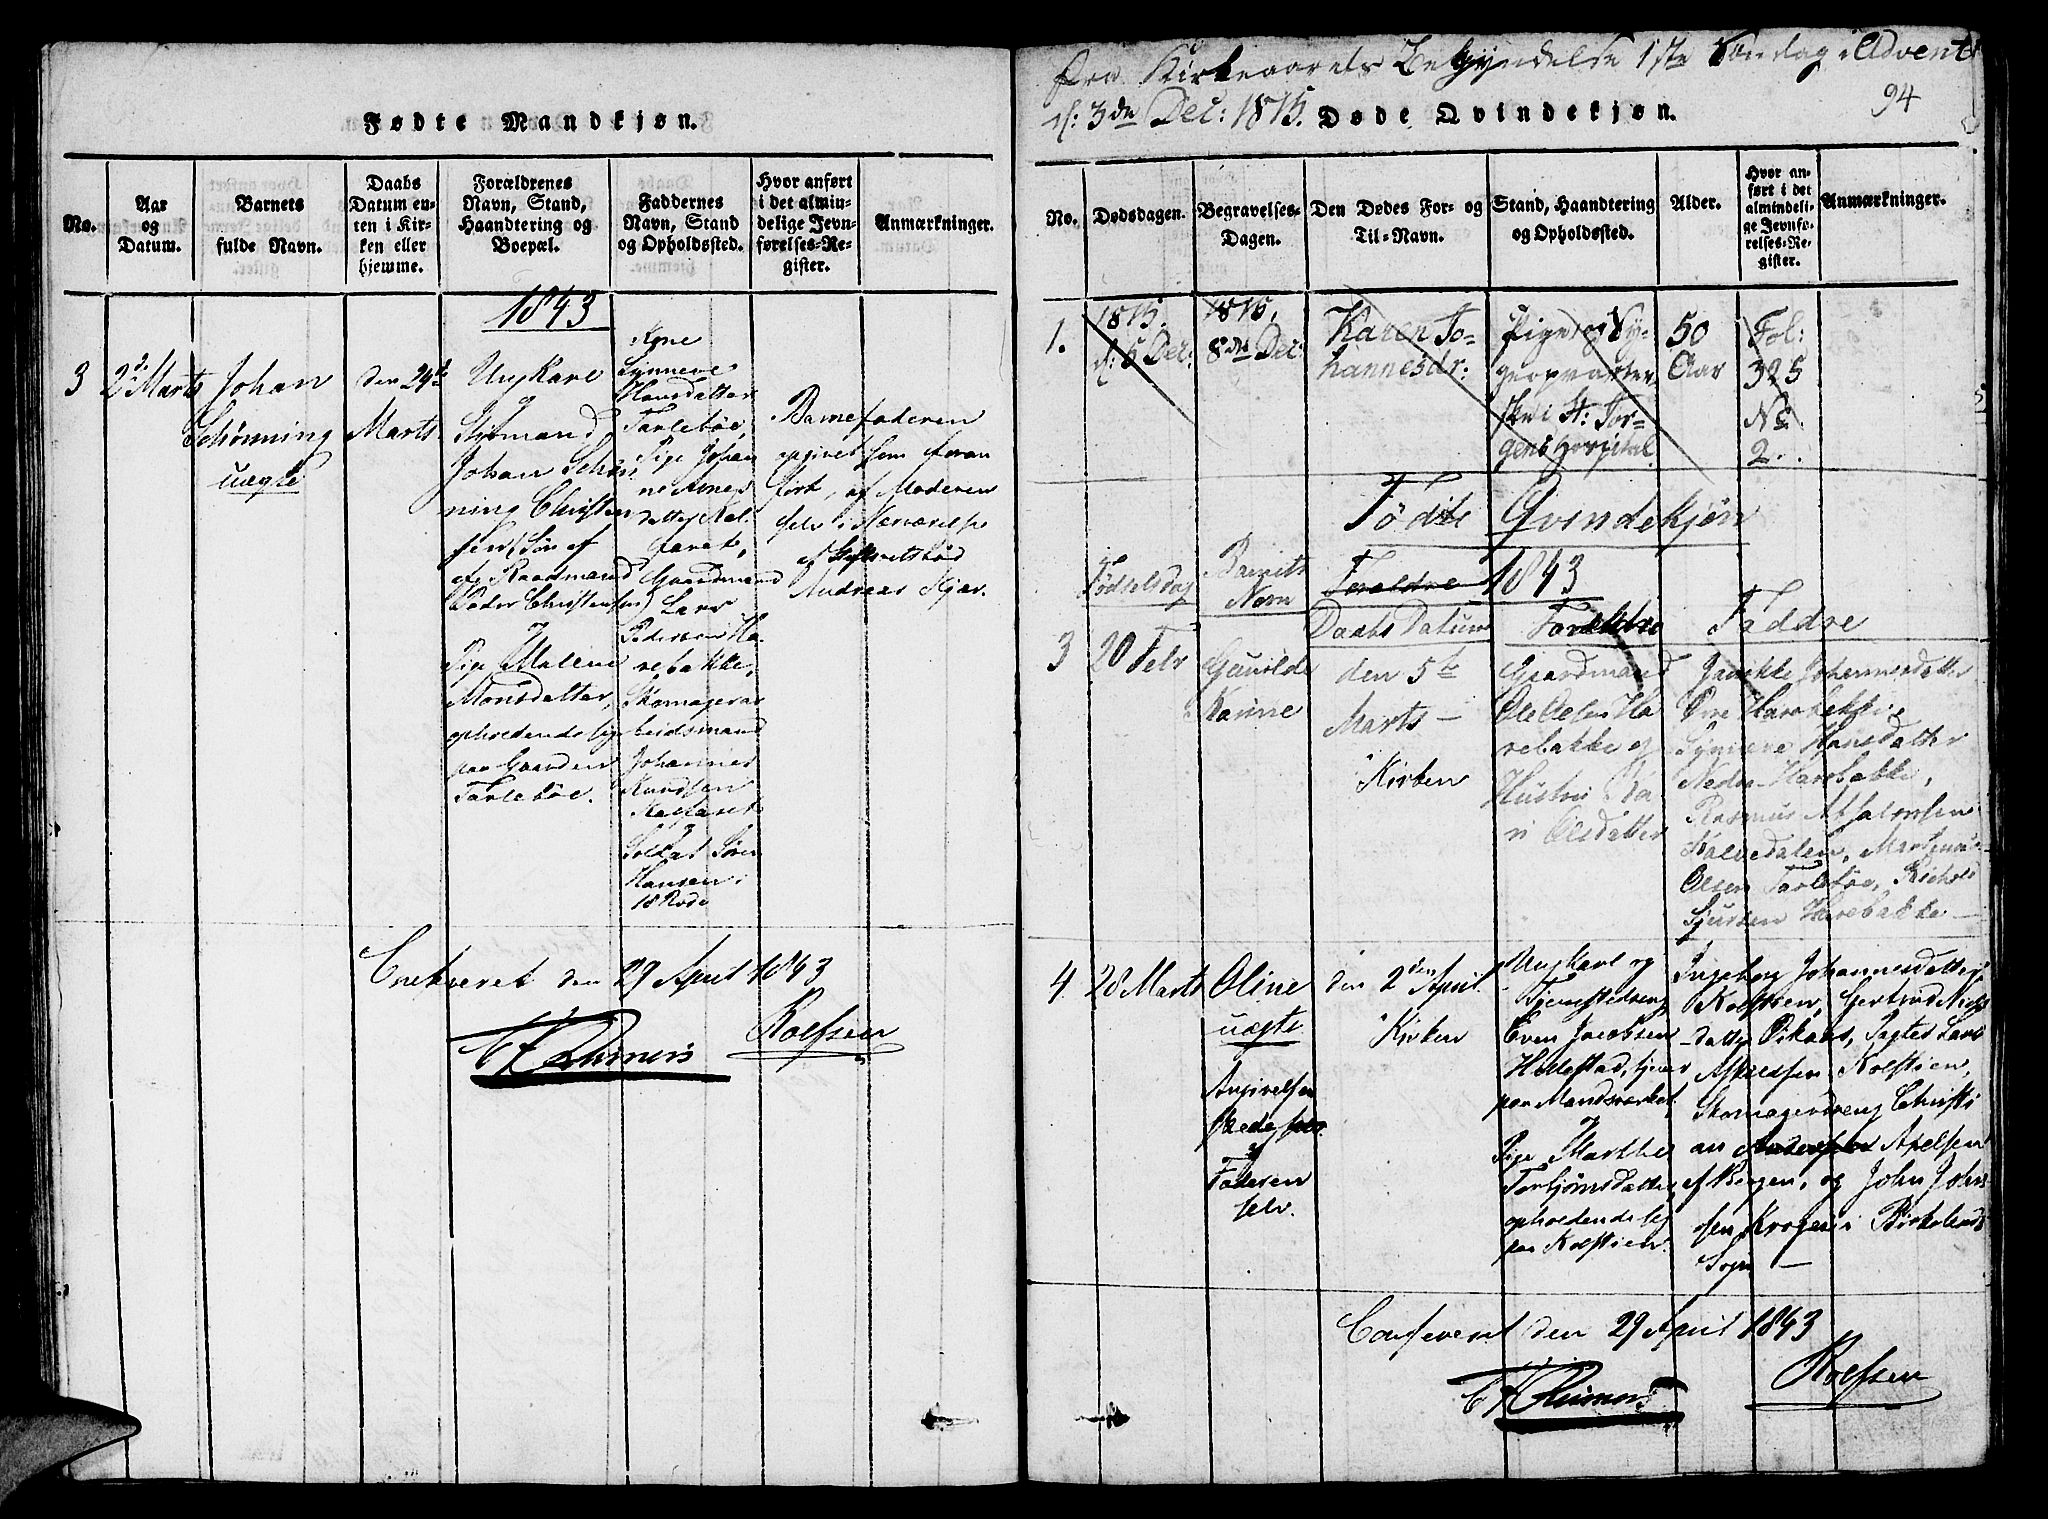 Fødte Mandkjøn.
No.
Aar
og
Datum.
Barnets
fulde Navn.
Daabs
Datum en-
ten i Kir-
ken eller
hjemme.
Forældrenes
Navn, Stand,
Haandtering og
Boepæl.
Faddernes
Navn, Stand
og Opholdssted.
Hvor anført
i det almin-
delige Jevn-
førelses-Re-
gister.
Anmærkninger.
1843
3
2den Marts
Johan
Schønning
uægte
den 24de
Marts
Ungkarl
og
Styrmand
Johan Schøn
ning Christen
sen (Søn af
Raadmand
Peder Christensen)
og
Pige Malene
Monsdatter,
opholdende sig
paa Gaarden
Tarlebøe.
Kone
Synneve
Hansdatter
Tarlebøe,
Pige Johan
ne
datter Kal-
faret,
Gaardmand
Lars
Pedersen Ha-
rebakke,
Skomagerar
beidsmand
Johannes
Knudsen
Kalfaret
og
Soldat Søren
Hansen i
18 Rode
Barnefaderen
opgivet som foran
ført, af Moderen
selv i Nærværelse
af
Andreas
Confereret den 29 April 1843
Rolfsen
Fra Kirkeaarets Begyndelse 1ste Søndag i Advent
d: 3de Dec: 1815. Døde Qvindekjøn.
94
No.
Dødsdagen.
Begravelses-
Dagen.
Den Dødes For- og
Til-Navn.
Stand, Haandtering
og Opholdssted.
Alder.
Hvor an-
ført i det
almindeli-
ge Jevnfø-
relses-Re-
gister.
Anmærkninger.
1.
1815.
d: 5 Dec:
1815.
8de Dec:
Karen Jo-
hannesdr:
Pige og Sy-
geopvarter-
ske i St: Jør-
gens Hospital.
50
Aar
Fol:
325
No
2.
Fødte Qvindekjøn
Fødselsdag
Barnets
Navn
Forældre
1843
Daabs Datum
Forældre
Faddre
3
20 Febr
Gunilde
Karine
den 5te
Marts -
i Kirken
Gaardmand
Ole Olsen Ha
rebakke og
Hustru Ka
ri Olsdatter
Jannikke Johannesdatter
Øvre Harebakke,
Synneve Hansdatter
Nedre Harebakke,
Rasmus Absalonsen
Kalvedalen,
Olsen Tarlebøe,
Sjursen Harebakke -
4
28 Marts
Oline
uægte
Angivelsen
skede
af
Faderen
selv.
den 2den April
i Kirken
Ungkarl og
Tjenestedreng
Even Jacobsen
Hillestad, tjener
paa Mandsverket
og
Pige Marthe
Torbjørnsdatter,
opholdende sig
paa Kolstien.
Ingeborg Johannesdatter
Kolstien, Gertrud Niels
datter Pikaas, Pagter Lars
Axelsen Kolstien,
Skomagerdreng Christi
an Andersen Axelsen
af Bergen, og John John
sen Krogen i Birkelands
Sogn -
Confereret den 29 April 1843
Rolfsen